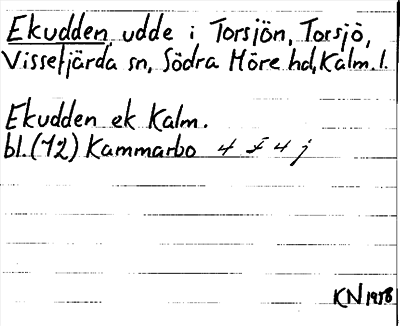 Ekudden, udde i Torsjön, Torsjö,
Vissefjärda sn, Södra Möre hd, Kalm. l.
Ekudden ek Kalm.
bl. (72) Kammarbo 4 F 4 j
KN 1978